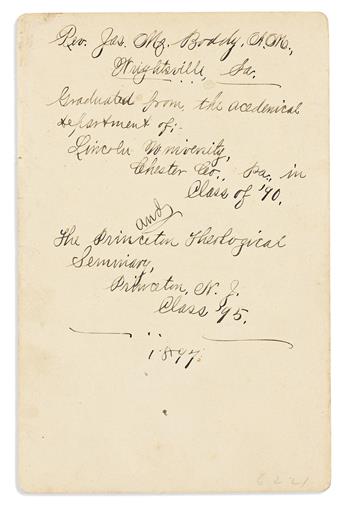 Rev. Jas. Mc. Boddy, A.M.,
Wrightsville, Pa.
Graduated from the acedemical
department of:-
Lincoln University,
Chester Co., Pa., in
Class of '90.
and
The Princeton Theological
Seminary,
Princeton, N. J.
Class '95.
1897.
6221